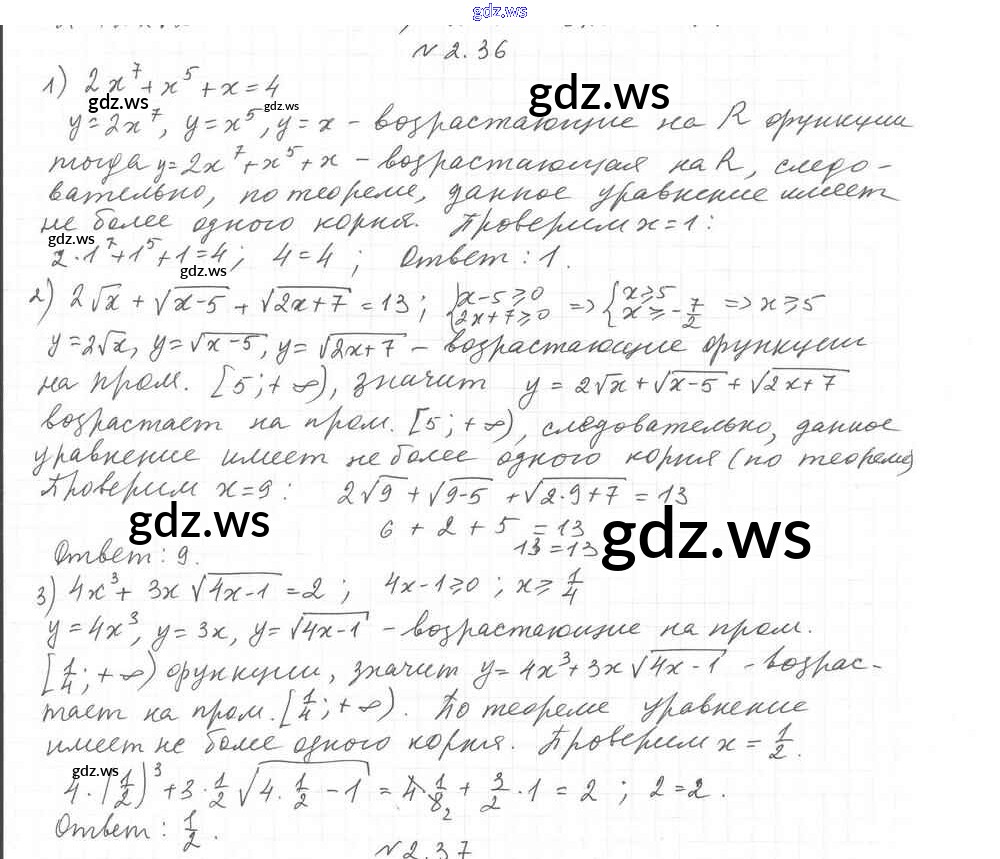 gdz.ws
№ 2.36
1) 2x⁷ + x⁵ + x = 4
gdz.ws gdz.ws gdz.ws
y = 2x⁷, y = x⁵, y = x – возрастающие на R функции
тогда y = 2x⁷ + x⁵ + x – возрастающая на R, следо-
вательно, по теореме, данное уравнение имеет
не более одного корня. Проверим x = 1:
gdz.ws
2·1⁷ + 1⁵ + 1 = 4; 4 = 4; Ответ: 1.
gdz.ws
2) 2√x + √(x-5) + √(2x+7) = 13; {x-5 ≥ 0 2x+7 ≥ 0 => {x ≥ 5 x ≥ -7/2 => x ≥ 5
y = 2√x, y = √(x-5), y = √(2x+7) – возрастающие функции
на пром. [5; +∞), значит y = 2√x + √(x-5) + √(2x+7)
возрастает на пром. [5; +∞), следовательно, данное
уравнение имеет не более одного корня (по теореме)
Проверим x = 9: 2√9 + √(9-5) + √(2·9+7) = 13
gdz.ws gdz.ws
6 + 2 + 5 = 13
13 = 13
Ответ: 9.
3) 4x³ + 3x√(4x-1) = 2; 4x-1 ≥ 0; x ≥ 1/4
y = 4x³, y = 3x, y = √(4x-1) – возрастающие на пром.
[1/4; +∞) функции, значит y = 4x³ + 3x√(4x-1) - возрас-
тает на пром. [1/4; +∞). По теореме уравнение
имеет не более одного корня. Проверим x = 1/2.
gdz.ws
4·(1/2)³ + 3·1/2√(4·1/2 - 1) = 4·1/8₂ + 3/2·1 = 2; 2 = 2.
Ответ: 1/2.
№ 2.37